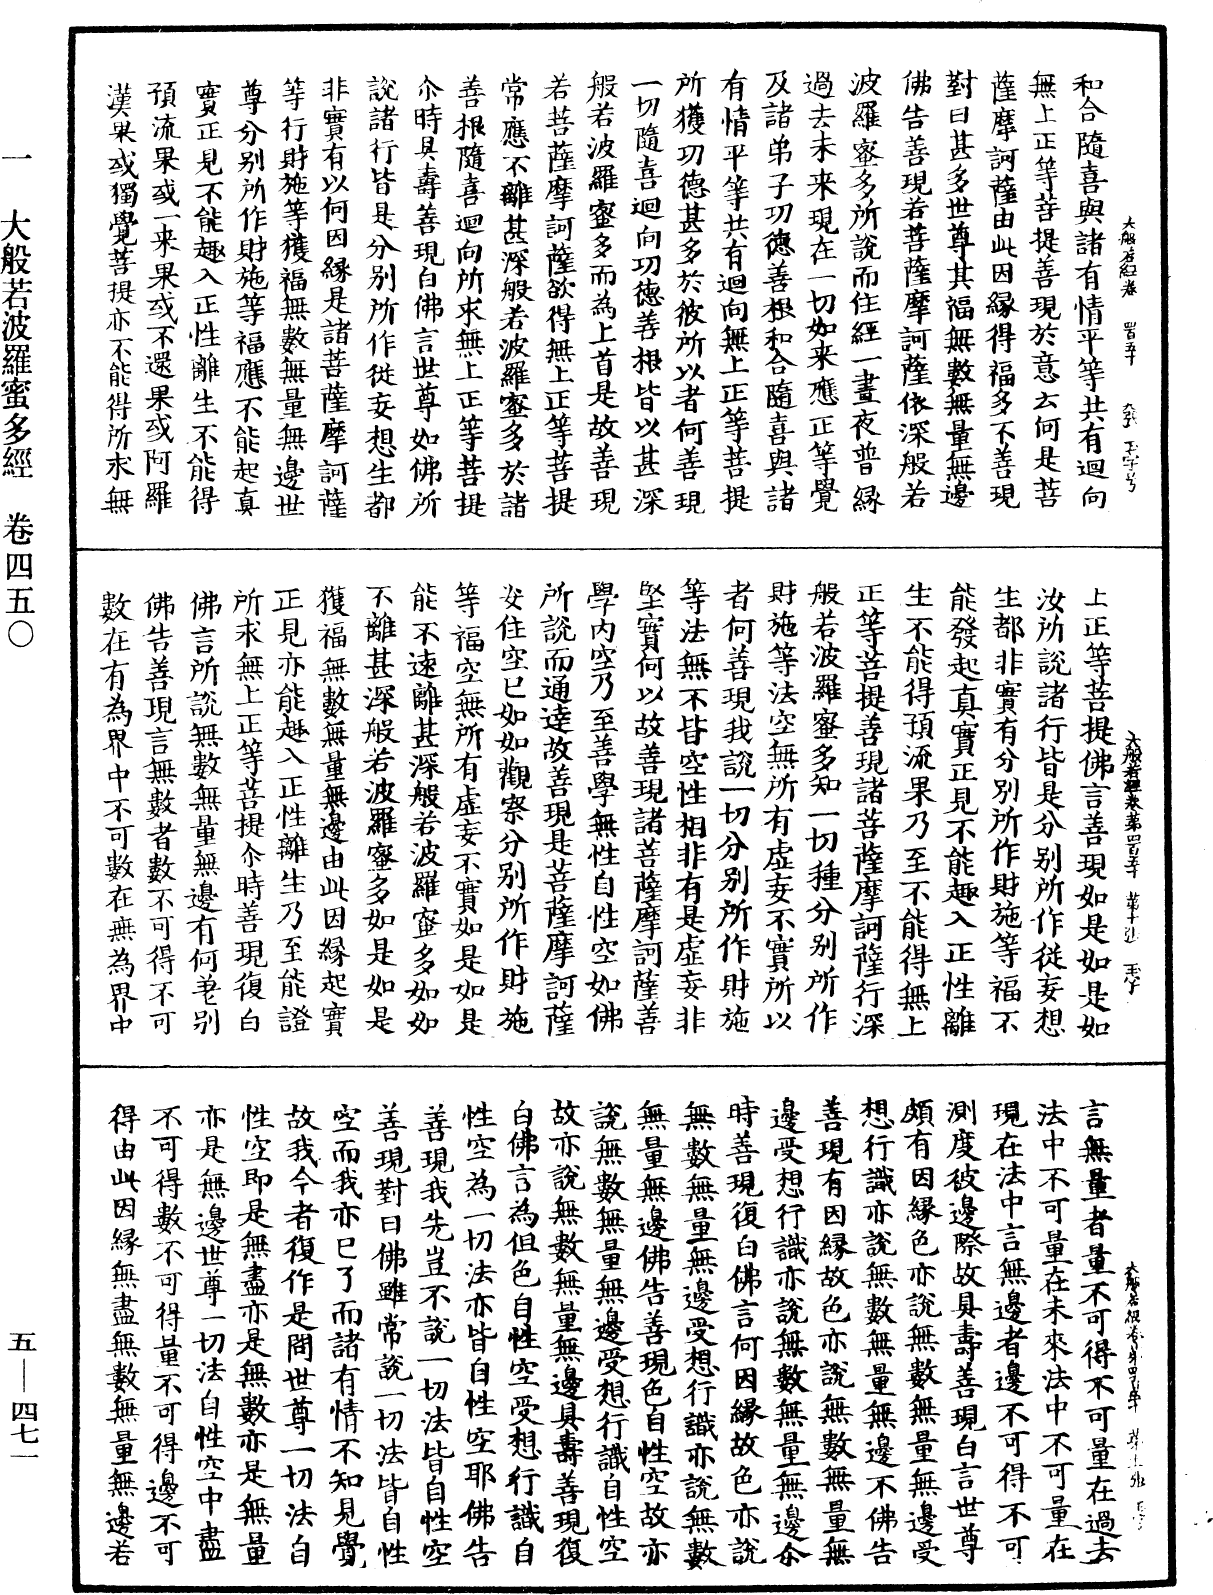 和合隨喜與諸有情平等共有迴向
無上正等菩提善現於意云何是菩
薩摩訶薩由此因緣得福多不善現
對曰甚多世尊其福無數無量無邊
佛告善現若菩薩摩訶薩依深般若
波羅蜜多所說而住經一晝夜普緣
過去未来現在一切如来應正等覺
及諸弟子功德善根和合隨喜與諸
有情平等共有迴向無上正等菩提
所獲功德甚多於彼所以者何善現
一切隨喜迴向功德善根皆以甚深
般若波羅蜜多而為上首是故善現
若菩薩摩訶薩欲得無上正等菩提
常應不離甚深般若波羅蜜多於諸
善根隨喜迴向所求無上正等菩提
尒時具壽善現白佛言世尊如佛所
說諸行皆是分別所作從妄想生都
非實有以何因緣是諸菩薩摩訶薩
等行財施等獲福無數無量無邊世
尊分別所作財施等福應不能起真
實正見不能趣入正性離生不能得
預流果或一来果或不還果或阿羅
漢果或獨覺菩提亦不能得所求無
上正等菩提佛言善現如是如是如
汝所說諸行皆是分別所作從妄想
生都非實有分別所作財施等福不
能發起真實正見不能趣入正性離
生不能得預流果乃至不能得無上
正等菩提善現諸菩薩摩訶薩行深
般若波羅蜜多知一切種分別所作
財施等法空無所有虛妄不實所以
者何善現我說一切分別所作財施
等法無不皆空性相非有是虛妄非
堅實何以故善現諸菩薩摩訶薩善
學內空乃至善學無性自性空如佛
所說而通達故善現是菩薩摩訶薩
安住空已如如觀察分別所作財施
等福空無所有虛妄不實如是如是
能不遠離甚深般若波羅蜜多如如
不離甚深般若波羅蜜多如是如是
獲福無數無量無邊由此因緣起實
正見亦能趣入正性離生乃至能證
所求無上正等菩提尒時善現復白
佛言所說無數無量無邊有何差別
佛告善現言無數者數不可得不可
數在有為界中不可數在無為界中
言無量者量不可得不可量在過去
法中不可量在未來法中不可量在
現在法中言無邊者邊不可得不可
測度彼邊際故具壽善現白言世尊
頗有因緣色亦說無數無量無邊受
想行識亦說無數無量無邊不佛告
善現有因緣故色亦說無數無量無
邊受想行識亦說無數無量無邊尒
時善現復白佛言何因緣故色亦說
無數無量無邊受想行識亦說無數
無量無邊佛告善現色自性空故亦
說無數無量無邊受想行識自性空
故亦說無數無量無邊具壽善現復
白佛言為但色自性空受想行識自
性空為一切法亦皆自性空耶佛告
善現我先豈不說一切法皆自性空
善現對曰佛雖常說一切法皆自性
空而我亦已了而諸有情不知見覺
故我今者復作是問世尊一切法自
性空即是無盡亦是無數亦是無量
亦是無邊世尊一切法自性空中盡
不可得數不可得量不可得邊不可
得由此因緣無盡無數無量無邊若
一 大般若波羅蜜多經 卷四五〇
五—四七一